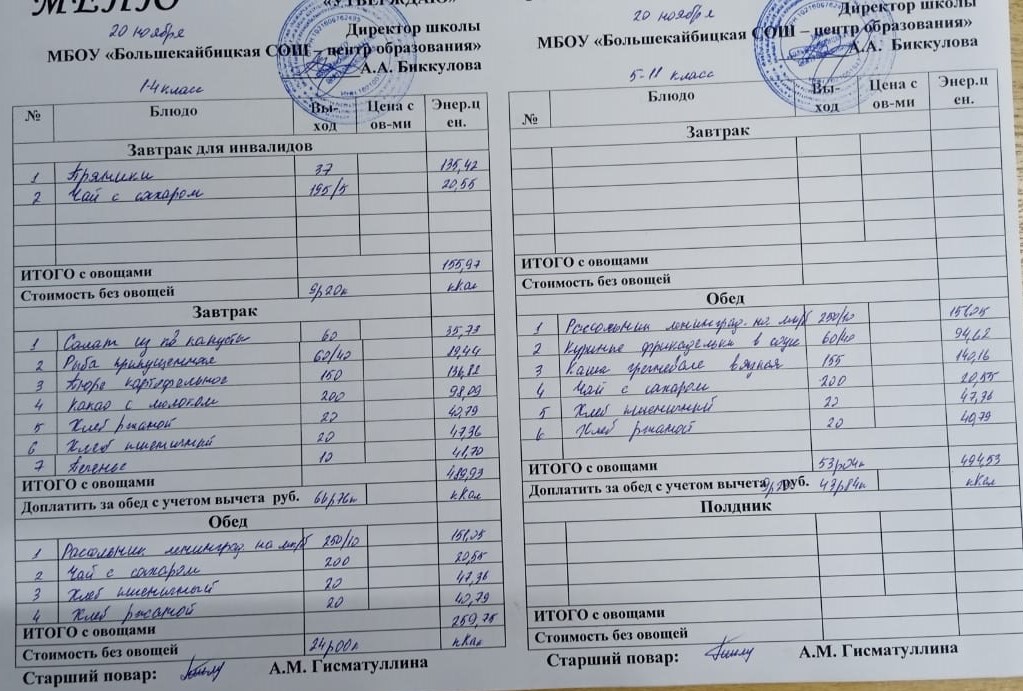 МЕНЮ
«УТВЕРЖДАЮ»
20 ноября
Директор школы
МБОУ «Большекайбицкая СОШ – центр образования»
А.А. Биккулова
1-4 класс
№ Блюдо Вы-ход Цена с ов-ми Энер.ц ен.
Завтрак для инвалидов
1 Пряники 37 135,42
2 Чай с сахаром 195/5 20,55
ИТОГО с овощами 155,97
Стоимость без овощей 9р20к кКал
Завтрак
1 Салат из капусты 60 35,73
2 Рыба припущенная 60/40
3 Пюре картофельное 150
4 Какао с молоком 200 98,09
5 Хлеб ржаной 20 40,79
6 Хлеб пшеничный 20 47,36
7 Печенье 10 41,70
ИТОГО с овощами 489,93
Доплатить за обед с учетом вычета руб. кКал
Обед
1 Рассольник ленинград. на м/б 250/10 151,05
2 Чай с сахаром 200 20,55
3 Хлеб пшеничный 20 47,36
4 Хлеб ржаной 20 40,79
ИТОГО с овощами 259,75
Стоимость без овощей 24р00к кКал
Старший повар: А.М. Гисматуллина
20 ноября
Директор школы
МБОУ «Большекайбицкая СОШ – центр образования»
А.А. Биккулова
5-11 класс
№ Блюдо Вы-ход Цена с ов-ми Энер.ц ен.
Завтрак
ИТОГО с овощами
Стоимость без овощей
Обед
1 Рассольник ленинград. на м/б 250/10 151,05
2 Куриные фрикадельки в соусе 60/40 94,62
3 Каша гречневая вязкая 155 140,16
4 Чай с сахаром 200 20,55
5 Хлеб пшеничный 20 47,36
6 Хлеб ржаной 20 40,79
ИТОГО с овощами 53р04к 494,53
Доплатить за обед с учетом вычета руб. 43р84к кКал
Полдник
ИТОГО с овощами
Стоимость без овощей
Старший повар: А.М. Гисматуллина